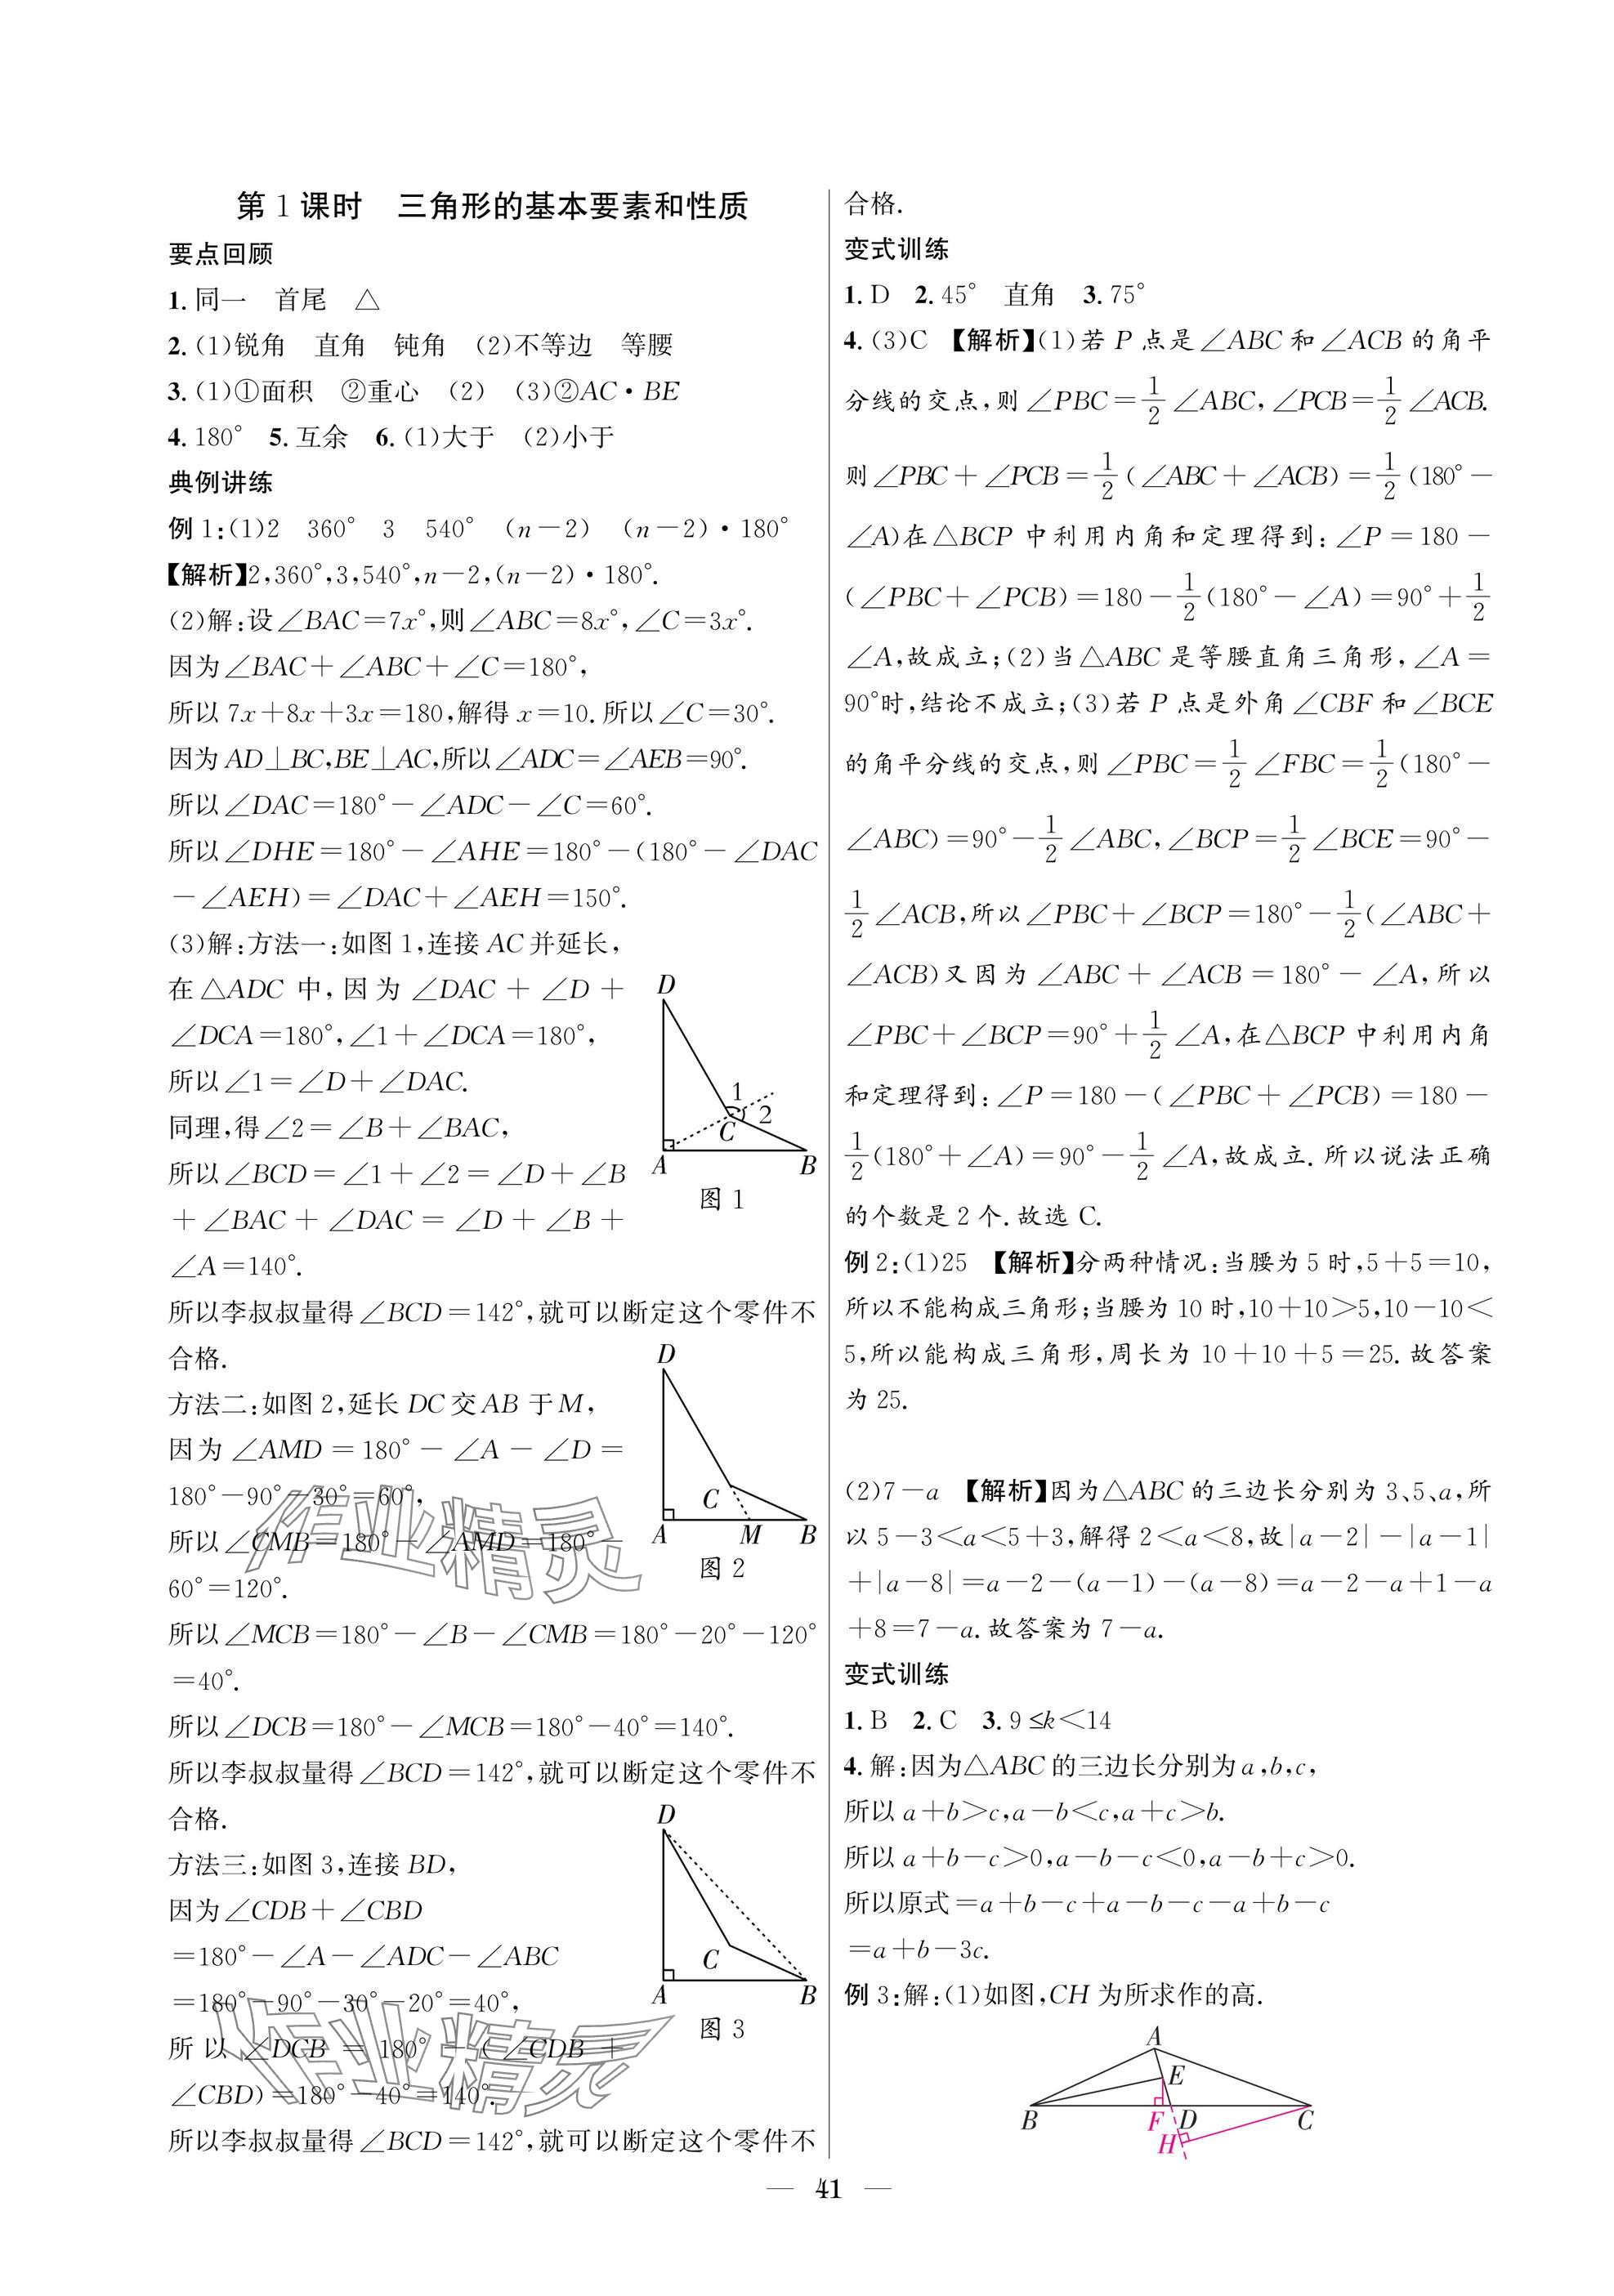 第 1 课时　三角形的基本要素和性质
要点回顾
1. 同一　首尾　△
2. (1)锐角　直角　钝角　(2)不等边　等腰
3. (1)①面积　②重心　(2)　(3)②AC·BE
4. 180°　5. 互余　6. (1)大于　(2)小于
典例讲练
例 1:(1)2　360°　3　540°　(n－2)　(n－2)·180°
【解析】2,360°,3,540°,n－2,(n－2)·180°.
(2)解:设∠BAC＝7x°,则∠ABC＝8x°,∠C＝3x°.
因为∠BAC＋∠ABC＋∠C＝180°,
所以 7x＋8x＋3x＝180,解得 x＝10. 所以∠C＝30°.
因为 AD⊥BC,BE⊥AC,所以∠ADC＝∠AEB＝90°.
所以∠DAC＝180°－∠ADC－∠C＝60°.
所以∠DHE＝180°－∠AHE＝180°－(180°－∠DAC
－∠AEH)＝∠DAC＋∠AEH＝150°.
(3)解:方法一:如图 1,连接 AC 并延长,
在△ADC 中,因为∠DAC＋∠D＋
∠DCA＝180°,∠1＋∠DCA＝180°,
所以∠1＝∠D＋∠DAC.
同理,得∠2＝∠B＋∠BAC,
所以∠BCD＝∠1＋∠2＝∠D＋∠B
＋∠BAC＋∠DAC＝∠D＋∠B＋
∠A＝140°.
D
1
2
C
A
B
图 1
所以李叔叔量得∠BCD＝142°,就可以断定这个零件不
合格.
方法二:如图 2,延长 DC 交 AB 于 M,
因为∠AMD＝180°－∠A－∠D＝
180°－90°－30°＝60°,
所以∠CMB＝180°－∠AMD＝180°－
60°＝120°.
D
C
A
M
B
图 2
所以∠MCB＝180°－∠B－∠CMB＝180°－20°－120°
＝40°.
所以∠DCB＝180°－∠MCB＝180°－40°＝140°.
所以李叔叔量得∠BCD＝142°,就可以断定这个零件不
合格.
方法三:如图 3,连接 BD,
因为∠CDB＋∠CBD
＝180°－∠A－∠ADC－∠ABC
＝180°－90°－30°－20°＝40°,
所以∠DCB＝180°－(∠CDB＋
∠CBD)＝180°－40°＝140°.
D
C
A
B
图 3
所以李叔叔量得∠BCD＝142°,就可以断定这个零件不
作业精灵
作业精灵
合格.
变式训练
1. D　2. 45°　直角　3. 75°
4. (3)C　【解析】(1)若 P 点是∠ABC 和∠ACB 的角平
分线的交点,则∠PBC＝1/2∠ABC,∠PCB＝1/2∠ACB.
则∠PBC＋∠PCB＝1/2(∠ABC＋∠ACB)＝1/2(180°－
∠A)在△BCP 中利用内角和定理得到:∠P＝180－
(∠PBC＋∠PCB)＝180－1/2(180°－∠A)＝90°＋1/2
∠A,故成立;(2)当△ABC 是等腰直角三角形,∠A＝
90°时,结论不成立;(3)若 P 点是外角∠CBF 和∠BCE
的角平分线的交点,则∠PBC＝1/2∠FBC＝1/2(180°－
∠ABC)＝90°－1/2∠ABC,∠BCP＝1/2∠BCE＝90°－
1/2∠ACB,所以∠PBC＋∠BCP＝180°－1/2(∠ABC＋
∠ACB)又因为∠ABC＋∠ACB＝180°－∠A,所以
∠PBC＋∠BCP＝90°＋1/2∠A,在△BCP 中利用内角
和定理得到:∠P＝180－(∠PBC＋∠PCB)＝180－
1/2(180°＋∠A)＝90°－1/2∠A,故成立. 所以说法正确
的个数是 2 个. 故选 C.
例 2:(1)25　【解析】分两种情况:当腰为 5 时,5＋5＝10,
所以不能构成三角形;当腰为 10 时,10＋10＞5,10－10＜
5,所以能构成三角形,周长为 10＋10＋5＝25. 故答案
为 25.
(2)7－a　【解析】因为△ABC 的三边长分别为 3、5、a,所
以 5－3＜a＜5＋3,解得 2＜a＜8,故|a－2|－|a－1|
＋|a－8|＝a－2－(a－1)－(a－8)＝a－2－a＋1－a
＋8＝7－a. 故答案为 7－a.
变式训练
1. B　2. C　3. 9≤k＜14
4. 解:因为△ABC 的三边长分别为 a,b,c,
所以 a＋b＞c,a－b＜c,a＋c＞b.
所以 a＋b－c＞0,a－b－c＜0,a－b＋c＞0.
所以原式＝a＋b－c＋a－b－c－a＋b－c
＝a＋b－3c.
例 3:解:(1)如图,CH 为所求作的高.
A
E
B
F
D
C
H
— 41 —